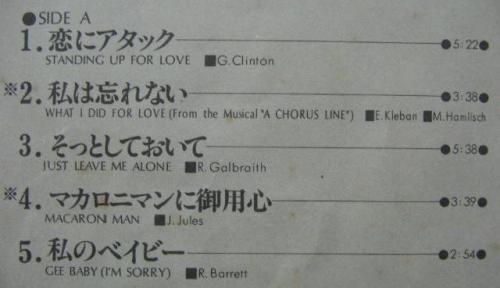 ●SIDE A
1. 恋にアタック ●5:22●
STANDING UP FOR LOVE ■G.Clinton
※2. 私は忘れない ●3:38●
WHAT I DID FOR LOVE (From the Musical "A CHORUS LINE") ■E.Kleban ■M.Hamlisch
3. そっとしておいて ●5:38●
JUST LEAVE ME ALONE ■R.Galbraith
※4. マカロニマンに御用心 ●3:39●
MACARONI MAN ■J.Jules
5. 私のベイビー ●2:54●
GEE BABY (I'M SORRY) ■R.Barrett